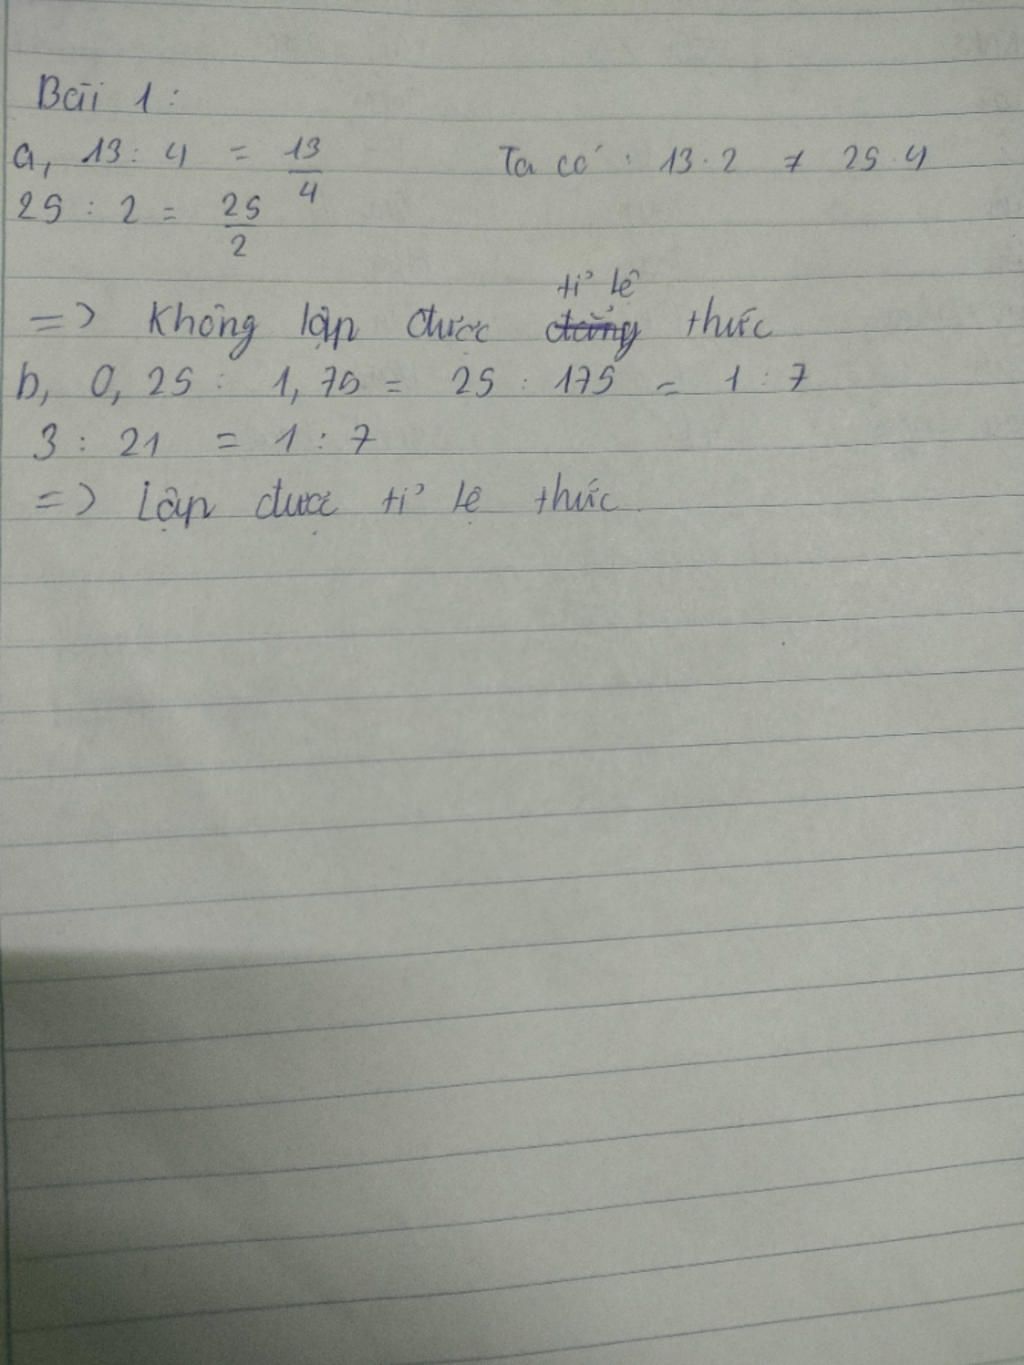 Bài 1:
a, 13 : 4 = 13/4 Ta có : 13 . 2 ≠ 25 . 4
25 : 2 = 25/2
=> Không lập được tỉ lệ thức
b, 0,25 : 1,75 = 25 : 175 = 1 : 7
3 : 21 = 1 : 7
=> Lập được tỉ lệ thức